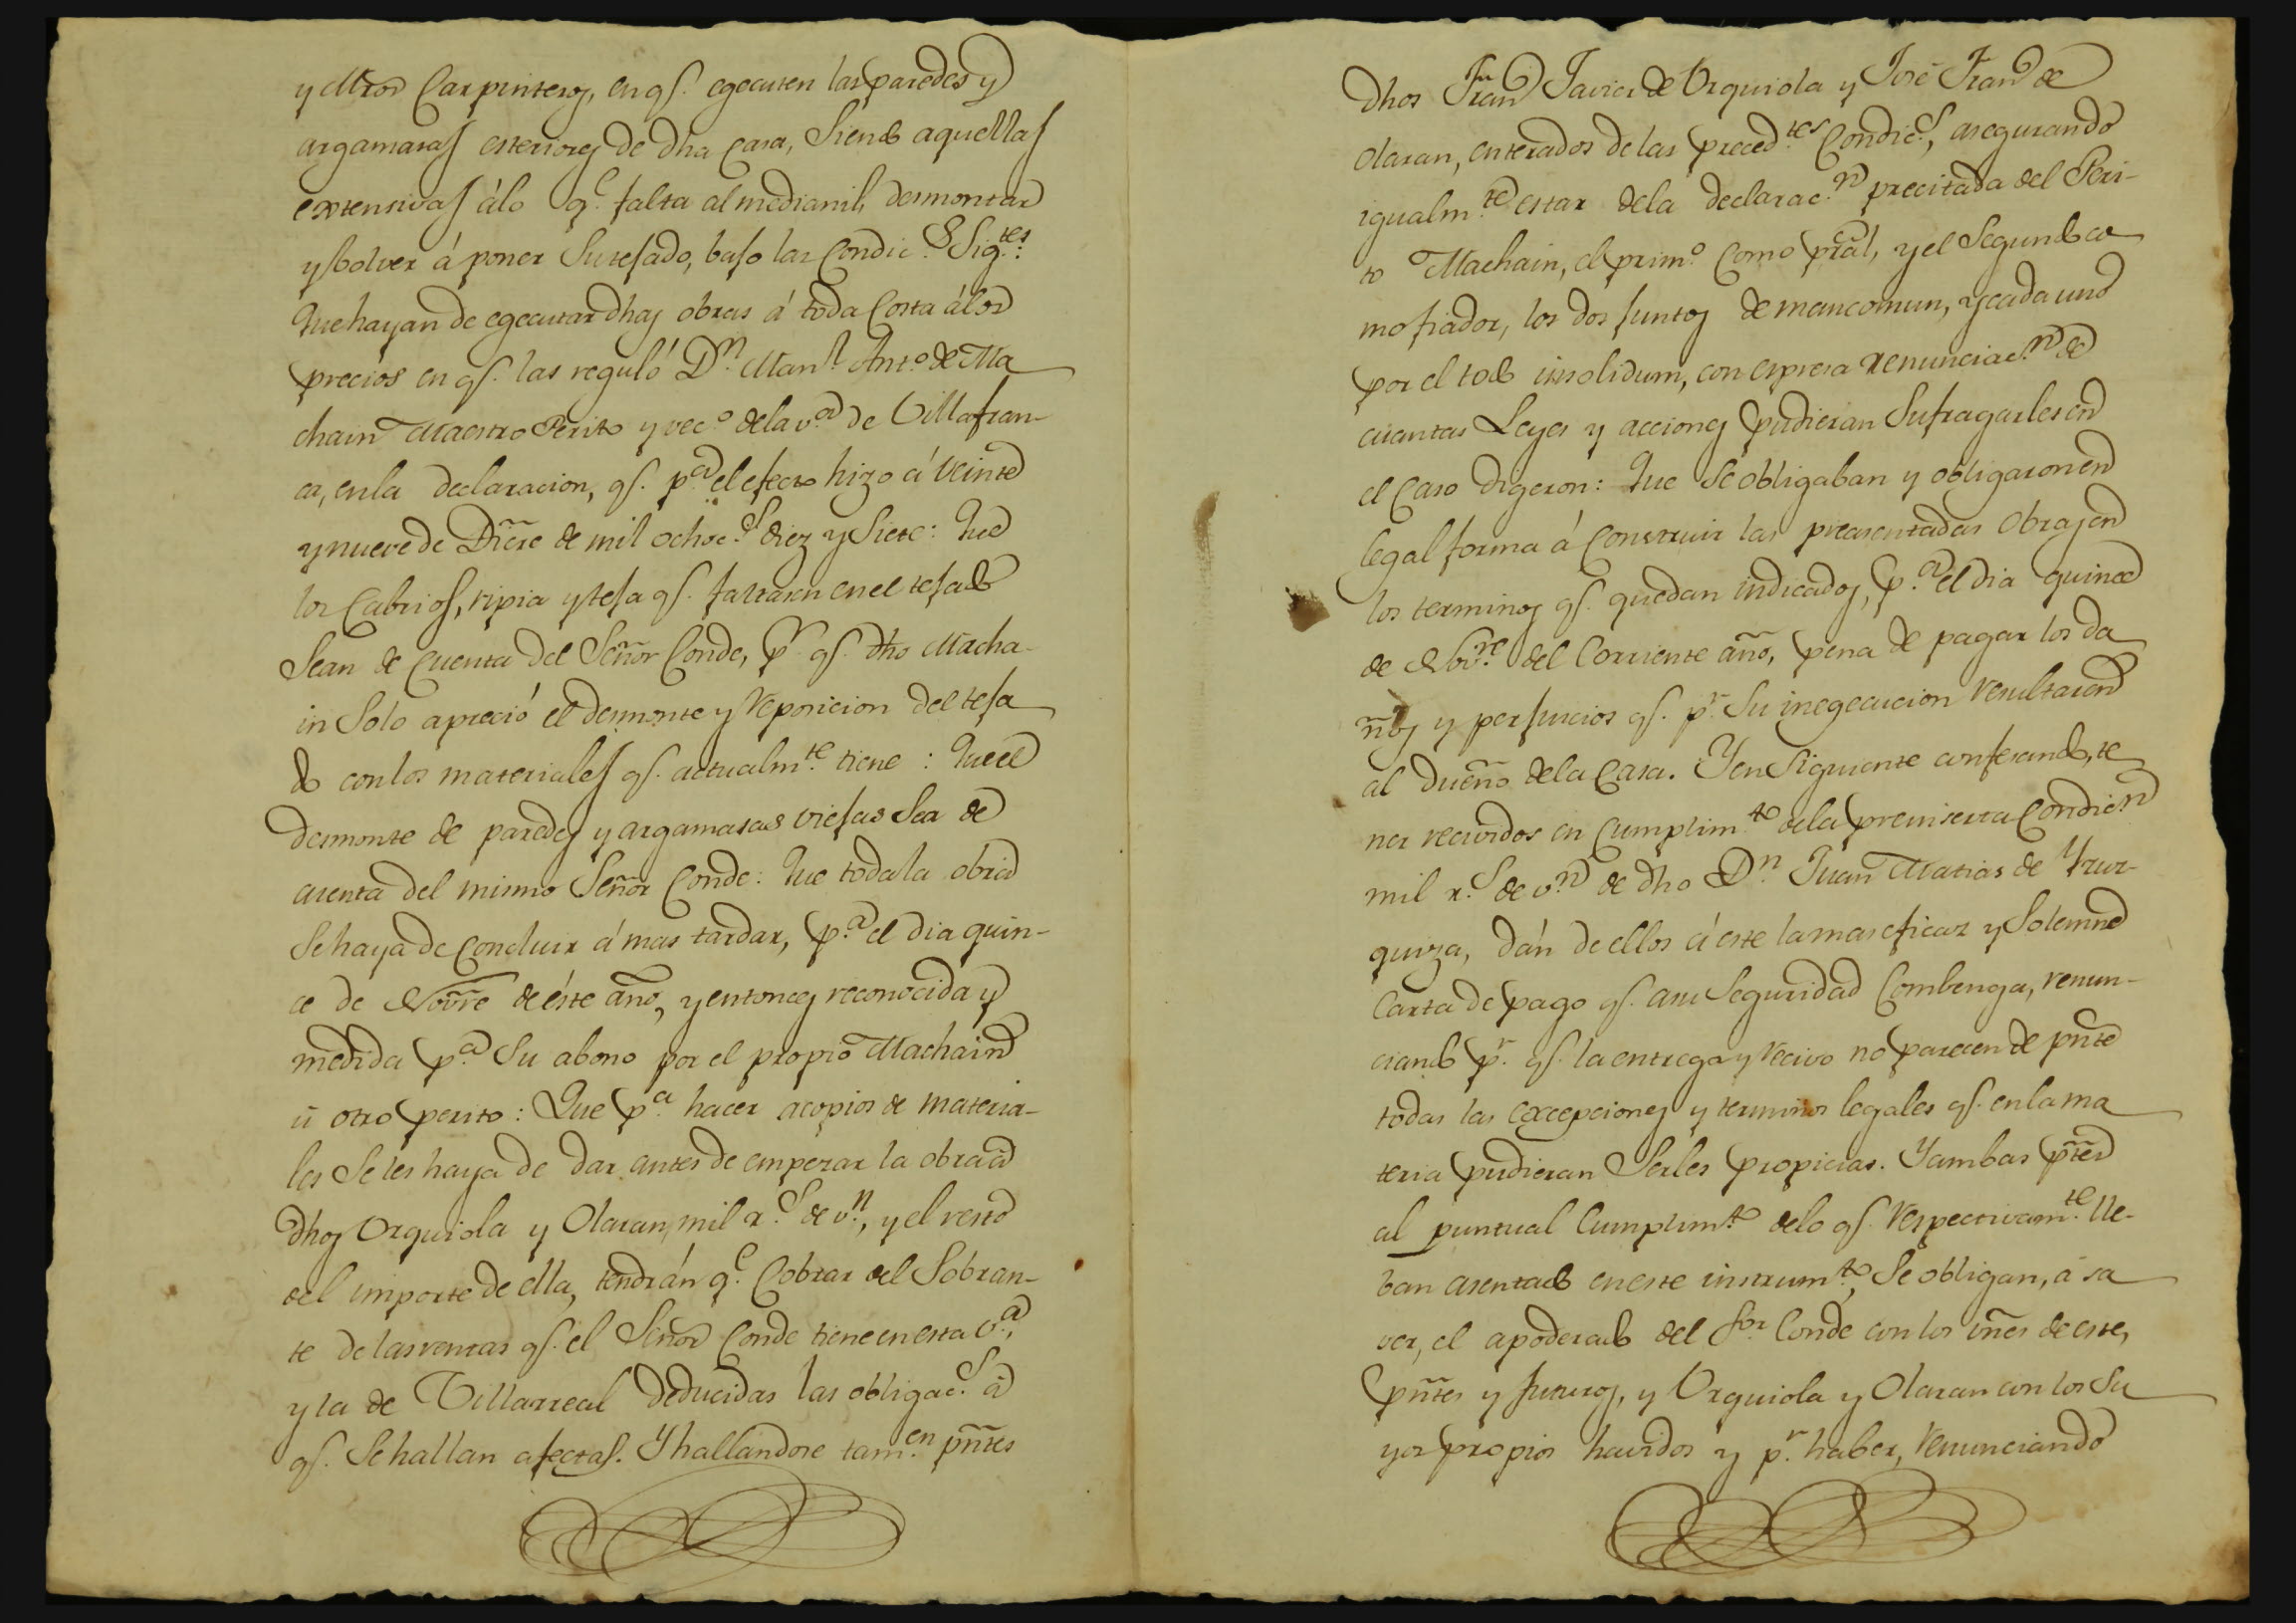 y Mros Carpinteros, en qe. egecuten las paredes y
argamasas esteriores de dha Casa, Siendo aquellas
extensivas álo qe. falta al medianil, desmontar
y bolver á poner Su tejado, bajo las Condics. Sigtes:
Que hayan de egecutar dhas obras á toda Costa álos
precios en qe. las reguló Dn. Manl. Anto. de Ma
chain Maestro Perito y veco. dela va. de Villafran-
ca, enla declaracion, qe. pa. el efecto hizo á veinte
y nueve de Dicre de mil ochocs. diez y Siete: Que
los Cabrios, ripia y teja qe. faltaren en el tejado
Sean de Cuenta del Señor Conde, pr. qe. dho Macha-
in Solo apreció el desmonte y reposicion del teja
do con los materiales qe. actualmte. tiene: Que el
desmonte de paredes y argamasas viejas Sea de
cuenta del mismo Señor Conde: Que toda la obra
Se haya de Concluir á mas tardar, pa. el dia quin-
ce de Novre de éste año, y entonces reconocida y
medida pa. Su abono por el propio Machain
ú otro perito: Que pa. hacer acopios de materia-
les Se les haya de dar antes de empezar la obra á
dhos Orquiola y Olaran, mil rs. de vn., y el resto
del importe de ella, tendrán qe. Cobrar del Sobran-
te de las rentas qe. el Señor Conde tiene en esta va.,
y la de Villarreal deducidas las obligacs. á
qe. Se hallan afectas. Y hallandose tamen. pñtes
dhos Fran Javier de Orquiola y José Fran de
Olaran, enterados de las precedtes. Condics., asegurando
igualmte. estar dela declaracn. precitada del Peri-
to Machain, el primo. Como pral, y el Segundo co
mo fiador, los dos juntos de mancomun, y cada uno
por el todo insolidum, con espresa renunciacn. de
cuantas Leyes y acciones pudieran Sufragarles en
el Caso digeron: Que Se obligaban y obligaron en
legal forma á Construir las precitadas Obras en
los terminos qe. quedan indicados, pa. el dia quince
de Novre. del Corriente año, pena de pagar los da
ños y perjuicios qe. pr. Su inegecucion resultaren
al dueño dela Casa. Y en Siguiente confesando, te
ner recividos en Cumplimto. dela preinserta Condicn.
mil rs. de vn. de dho Dn. Juan Matias de Yrur-
quiza, dán de ellos á este la mas eficaz y Solemne
Carta de pago qe. asu Seguridad Combenga, renun-
ciando pr. qe. la entrega y recivo no parecen de pñte
todas las excepciones y terminos legales qe. en la ma
teria pudieran Serles propicias. Y ambas ptes
al puntual Cumplimto. delo qe. respectivamte. lle-
ban asentado en este instrumto., Se obligan, á sa
ver, el apoderado del Sor. Conde con los vñes de este,
pñtes y futuros, y Orquiola y Olaran con los Su
yos propios havidos y pr. haber, renunciando